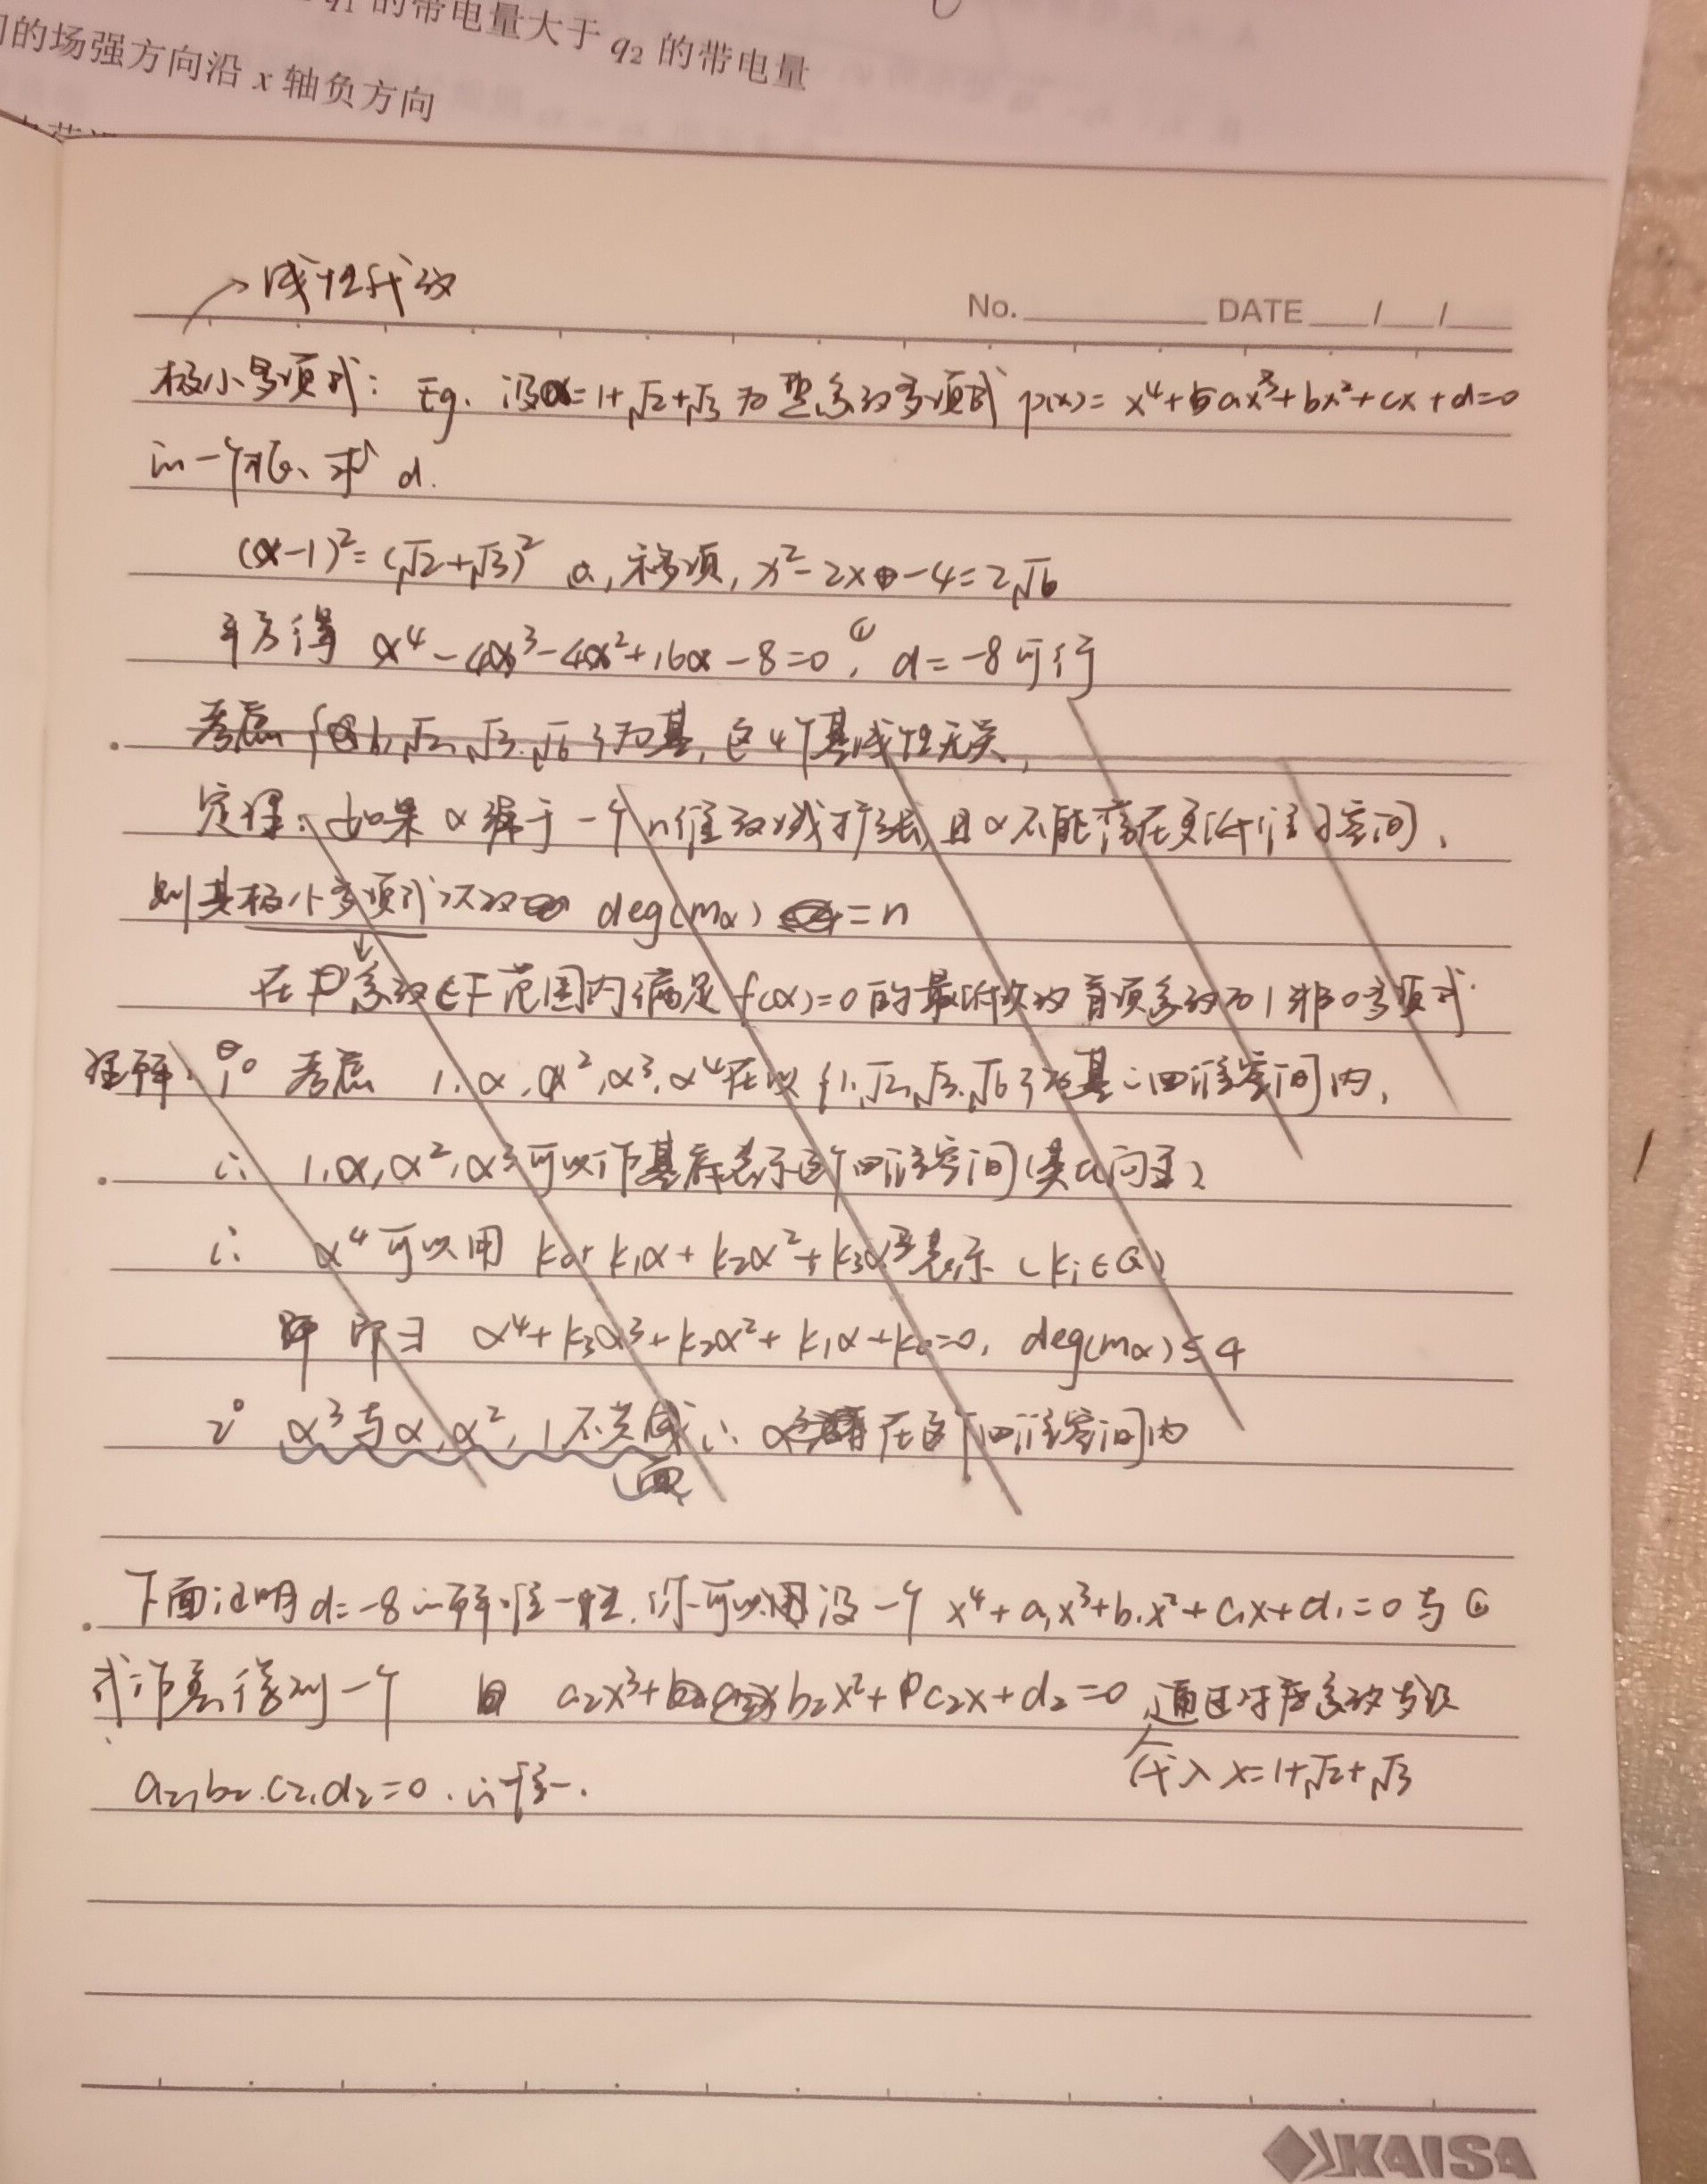 q₁的带电量大于 q₂ 的带电量
的场强方向沿 x 轴负方向
→线性代数
No. DATE / /
极小多项式: Eg. 设α=1+√2+√3 为整系数多项式 p(x)= x⁴+ax³+bx²+cx+d=0
的一个根、求 d.
(α-1)²=(√2+√3)² , 移项, x²-2x-4=2√6
平方得 α⁴-4α³-4α²+16α-8=0 ①, d=-8可行
考虑{1,√2,√3,√6}为基,这4个基线性无关,
定理: 如果α属于一个n维数域扩张,且α不能落在更低维的空间,
则其极小多项式次数 deg(mα) =n
在系数∈F范围内满足f(α)=0的最低次数首项系数为1非0多项式
理解: 1° 考虑 1,α,α²,α³,α⁴在以{1,√2,√3,√6}为基的四维空间内,
∴ 1,α,α²,α³可以作基底表示这个四维空间(类比向量)
∴ α⁴可以用 k₀+k₁α+k₂α²+k₃α³表示 (kᵢ∈Q)
即∃ α⁴+k₃α³+k₂α²+k₁α+k₀=0, deg(mα)≤4
2° α³与α,α²,1不共线∴ α³在这个四维空间内
面
下面证明d=-8的解唯一性. 你可以设一个 x⁴+a₁x³+b₁x²+c₁x+d₁=0与①
式作差得到一个 a₂x³+b₂x²+c₂x+d₂=0 通过对应系数考虑
代入 x=1+√2+√3
a₂,b₂,c₂,d₂=0 .∴唯一.
KAISA